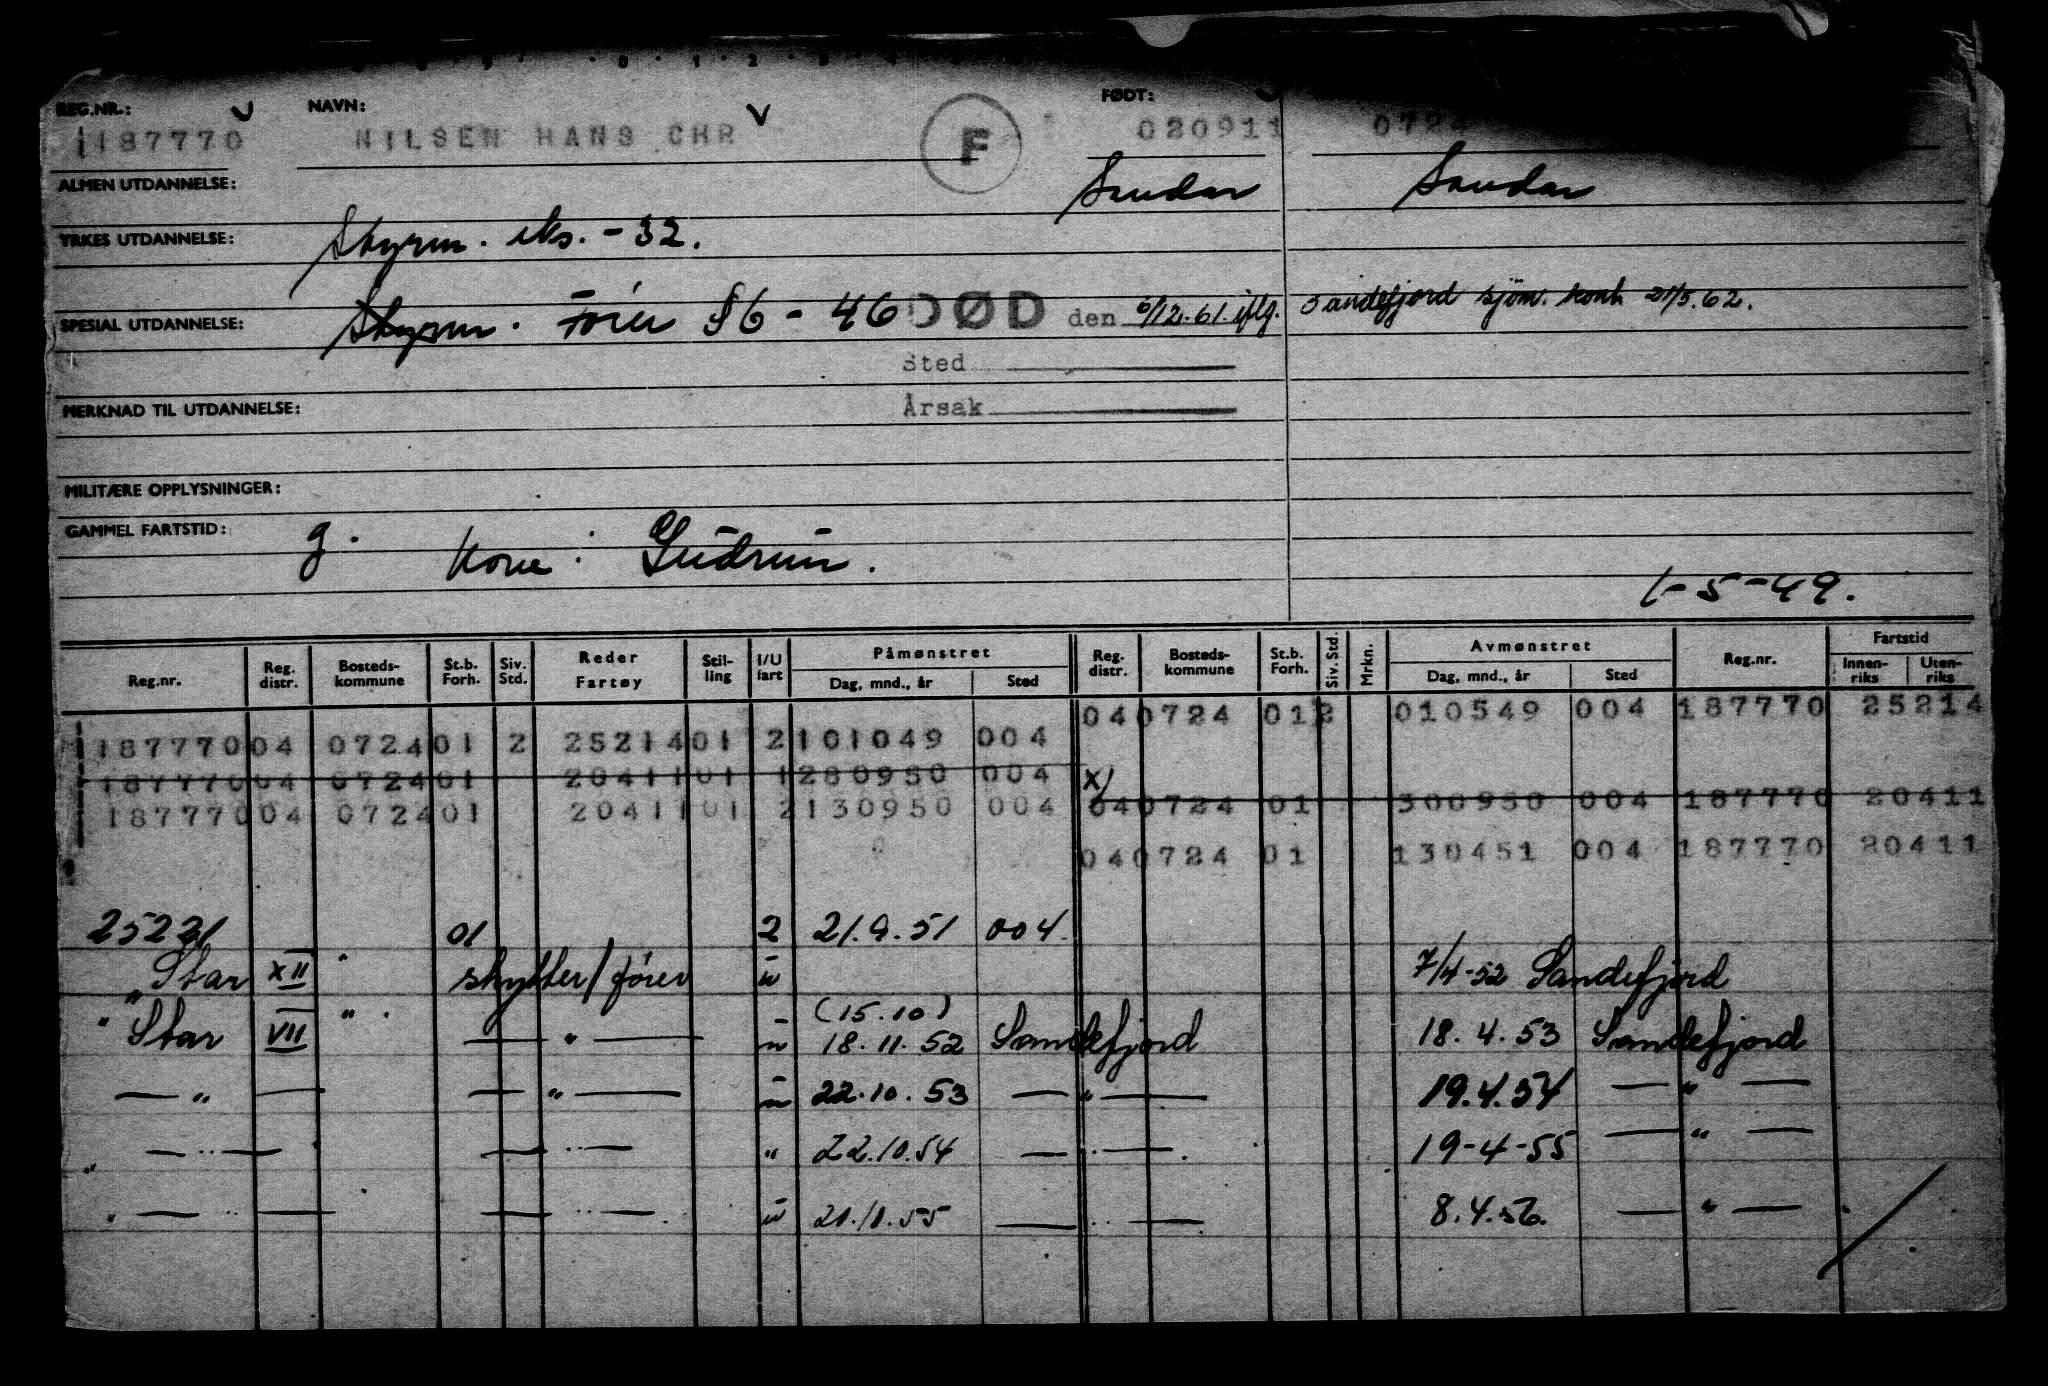 REG.NR.: NAVN: FØDT:
187770 NILSEN HANS CHR F 020911 0724
ALMEN UTDANNELSE: Sandar Sandar
YRKES UTDANNELSE: Styrm. eks. - 32.
SPESIAL UTDANNELSE: Styrm. Förer §6 - 46 DØD den 6/12.61. iflg. Sandefjord sjöm. kont 21/5.62.
Sted
Årsak
MERKNAD TIL UTDANNELSE:
MILITÆRE OPPLYSNINGER:
GAMMEL FARTSTID: g. Kone: Gudrun.
1-5-49.
Reg.nr. Reg. distr. Bosteds- kommune St.b. Forh. Siv. Std. Reder Fartøy Stil- ling I/U fart Påmønstret Dag, mnd., år Sted Reg. distr. Bosteds- kommune St.b. Forh. Siv. Std. Mrkn. Avmønstret Dag, mnd., år Sted Reg.nr. Fartstid Innen- riks Uten- riks
040724 012 010549 004 187770 25214
187770 04 0724 01 2 25214 01 2 101049 004
187770 04 0724 01 20411 01 1 280950 004 X/
040724 01 300950 004 187770 20411
187770 04 0724 01 20411 01 2 130950 004
040724 01 130451 004 187770 20411
25221 01 2 21.9.51 004
"Star XII " skytter/förer u 7/4-52 Sandefjord
(15.10)
" Star VII " . — " — u 18.11.52 Sandefjord 18.4.53 Sandefjord
— " — — " — u 22.10.53 — " — 19.4.54 — " —
" — " — — " — " 22.10.54 — " — . 19-4-55 — " —
" — — — " — u 21.10.55 — " — 8.4.56. — " —